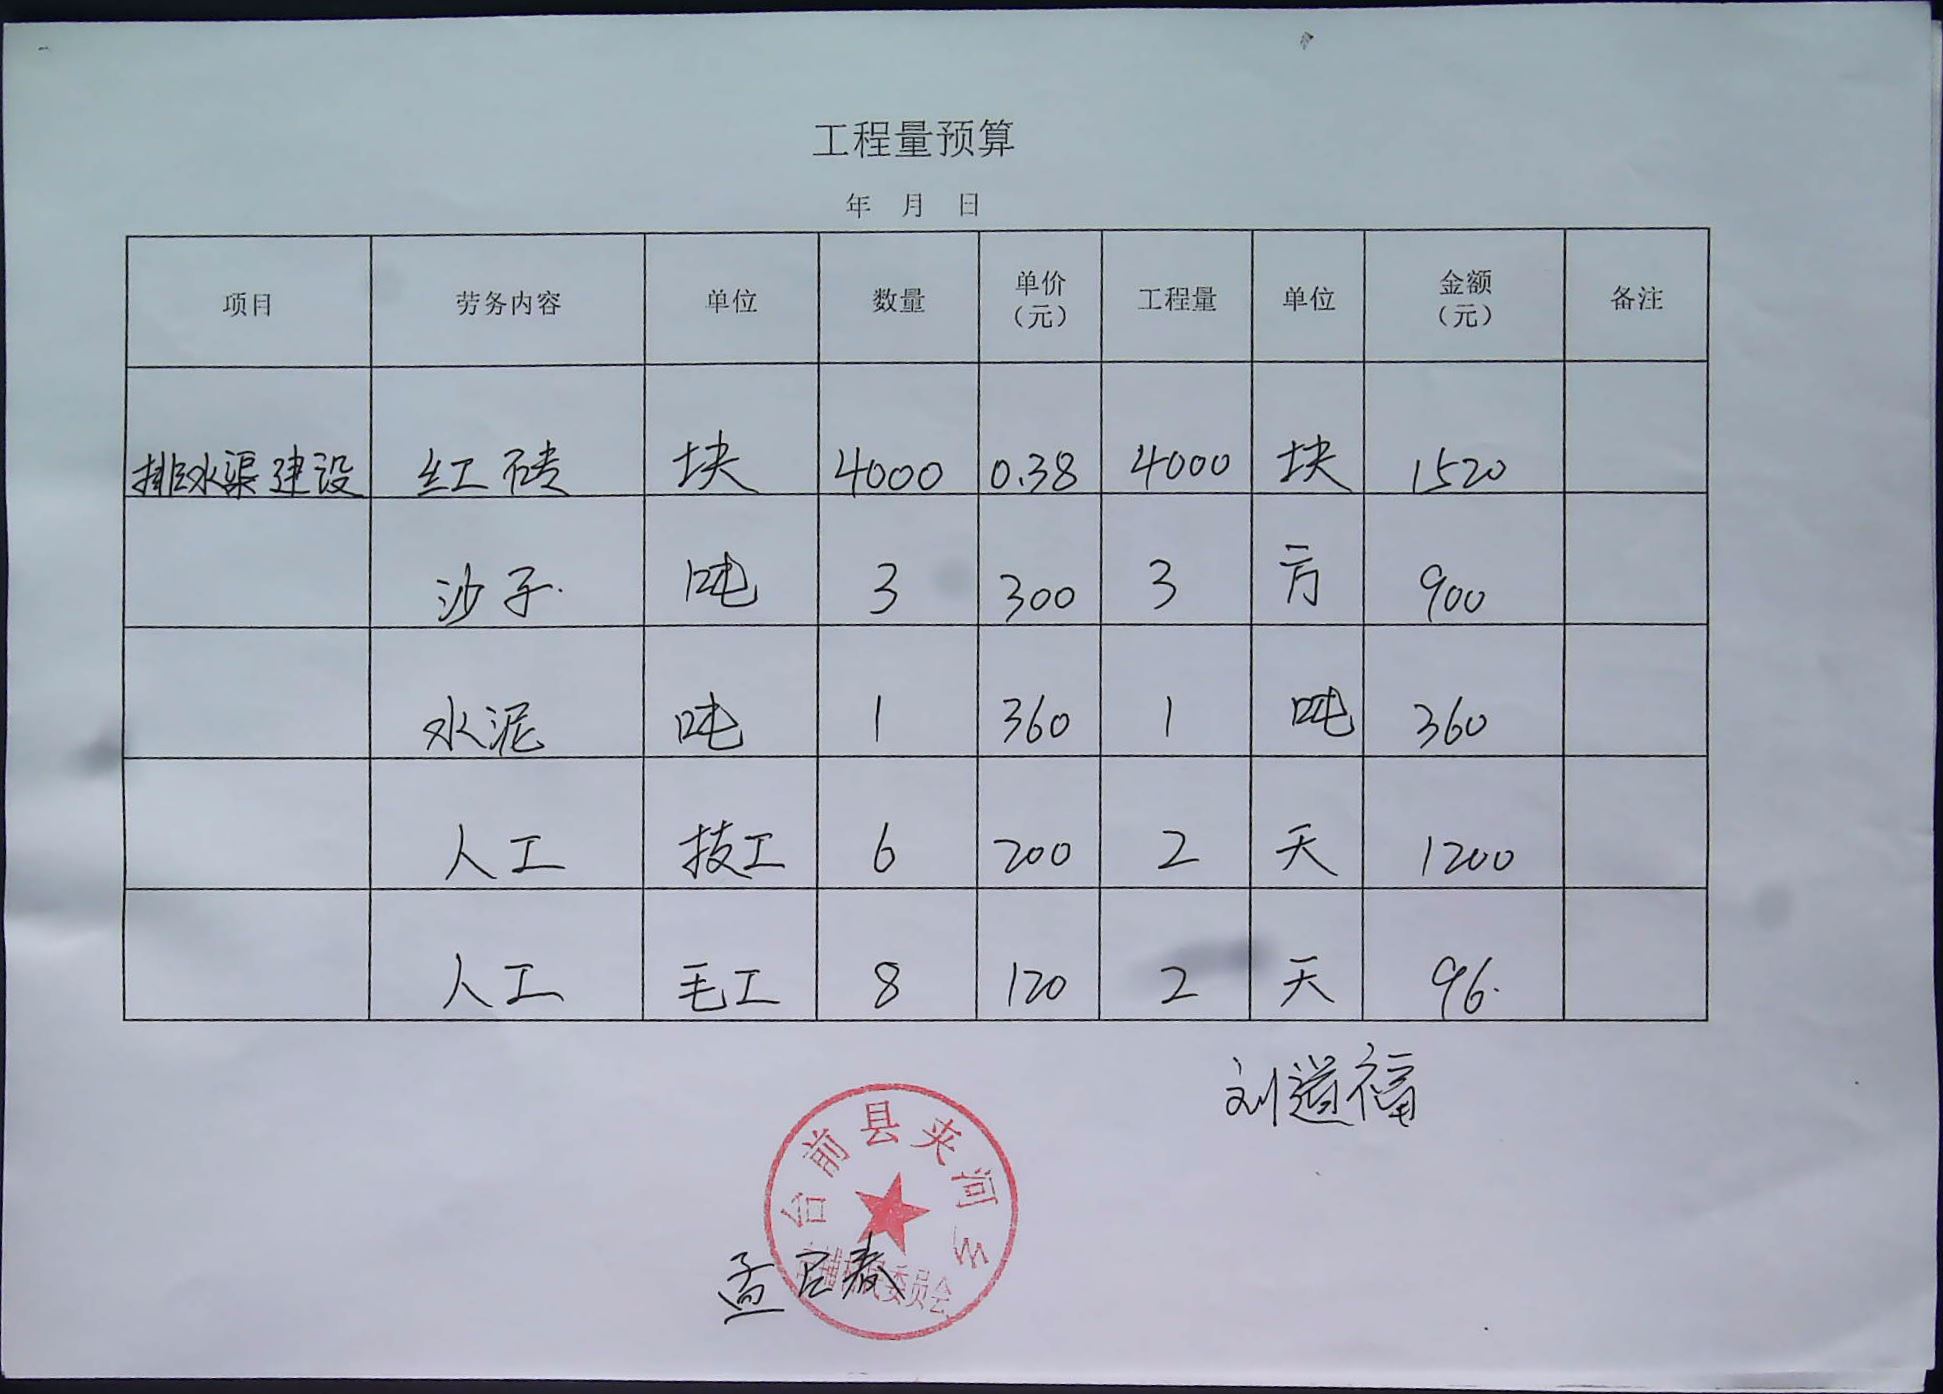 工程量预算
年 月 日
项目 劳务内容 单位 数量 单价（元） 工程量 单位 金额（元） 备注
排水渠建设 红砖 块 4000 0.38 4000 块 1520
沙子 吨 3 300 3 方 900
水泥 吨 1 360 1 吨 360
人工 技工 6 200 2 天 1200
人工 毛工 8 120 2 天 96
刘道福
台前县夹河乡
民委员会
孟 春